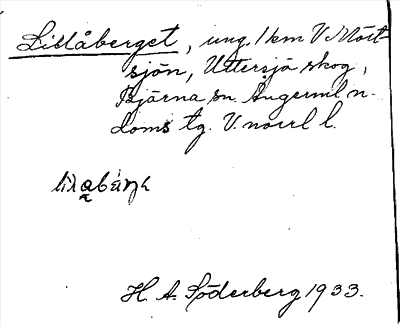 Lillåberget, ung. 1 km V Mört-
sjön, Uttersjö skog,
Bjärna sn. Ångerml n-
doms tg. V. norrl l.
H. A. Söderberg 1933.